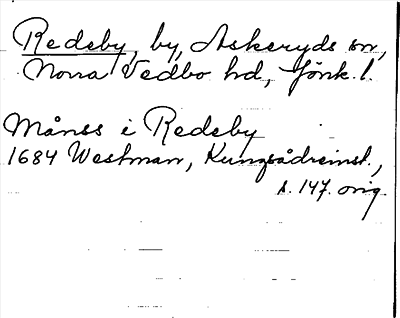 Redeby, by, Askeryds sn,
Norra Vedbo hd, Jönk. l.
Månss i Redeby
1684 Westman, Kungsådreinst.,
s. 147. orig.